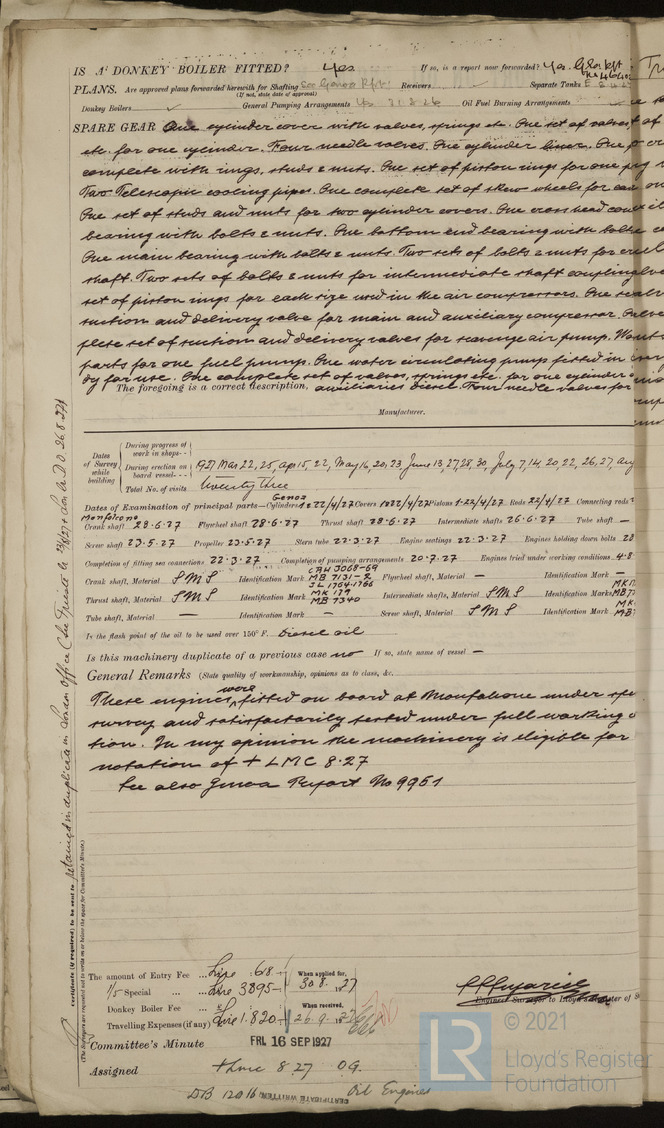 IS A DONKEY BOILER FITTED? Yes If so, is a report now forwarded? Yes. Gla Rpt
PLANS. Are approved plans forwarded herewith for Shafting See Genoa Rpt Receivers Separate Tanks
(If not, state date of approval)
Donkey Boilers ✓ General Pumping Arrangements Yes 31 8 26 Oil Fuel Burning Arrangements
SPARE GEAR One cylinder cover with valves, springs etc. One set of valves
etc. for one cylinder. Four needle valves. One cylinder liner. One
complete with rings, studs & nuts. One set of piston rings for one
Two Telescopic cooling pipes. One complete set of skew wheels for
One set of studs and nuts for two cylinder covers. One cross head
bearing with bolts & nuts. One bottom end bearing with bolts
One main bearing with bolts & nuts. Two sets of bolts & nuts for
shaft. Two sets of bolts & nuts for intermediate shaft coupling
set of piston rings for each size used in the air compressors. One
suction and delivery valve for main and auxiliary compressor.
plete set of suction and delivery valves for scavenge air pump.
parts for one fuel pump. One water circulating pump fitted in
dy for use. One complete set of valves, springs etc. for one cylinder
The foregoing is a correct description, auxiliaries diesel. Four needle valves for
Manufacturer.
Dates of Survey while building
During progress of work in shops - -
During erection on board vessel - - - 1927 Mar 22, 25, Apr 15, 22, May 16, 20, 23, June 13, 27, 28, 30, July 7, 14, 20, 22, 26, 27, Aug
Total No. of visits Twenty three
Dates of Examination of principal parts—Cylinders Genoa 1822/4/27 Covers 1822/4/27 Pistons 1-22/4/27 Rods 22/4/27 Connecting rods
Monfalcone
Crank shaft 28.6.27 Flywheel shaft 28.6.27 Thrust shaft 28.6.27 Intermediate shafts 26.6.27 Tube shaft —
Screw shaft 23.5.27 Propeller 23.5.27 Stern tube 22.3.27 Engine seatings 22.3.27 Engines holding down bolts 28
Completion of fitting sea connections 22.3.27 Completion of pumping arrangements 20.7.27 Engines tried under working conditions 4.8
Crank shaft, Material SMS Identification Mark CAH 3068-69 MB 7131-2 SL 1764-1766 Flywheel shaft, Material — Identification Mark —
Thrust shaft, Material SMS Identification Mark MK 179 MB 7340 Intermediate shafts, Material SMS Identification Marks
Tube shaft, Material — Identification Mark — Screw shaft, Material SMS Identification Mark
Is the flash point of the oil to be used over 150° F. Diesel oil
Is this machinery duplicate of a previous case no If so, state name of vessel —
General Remarks (State quality of workmanship, opinions as to class, &c.
These engines were fitted on board at Monfalcone under spe
survey and satisfactorily tested under full working
tion. In my opinion the machinery is eligible for
notation of + LMC 8.27
See also Genoa Report No 9951
Certificate (if required) to be sent to retained in duplicate in London Office
(The Surveyors are requested not to write on or below the space for Committee's Minute.)
The amount of Entry Fee ... Lire : 618 When applied for,
1/5 Special ... ... Lire 3895 30.8.1927
Donkey Boiler Fee ... £ When received,
Travelling Expenses (if any) Lire 1.820 26.9.27
Engineer Surveyor to Lloyd's Register of S
Committee's Minute FRI. 16 SEP 1927
Assigned + Lmc 8 27 O.G.
DB 120 lb. Oil Engines
CERTIFICATE WRITTEN.
LR
© 2021
Lloyd's Register
Foundation